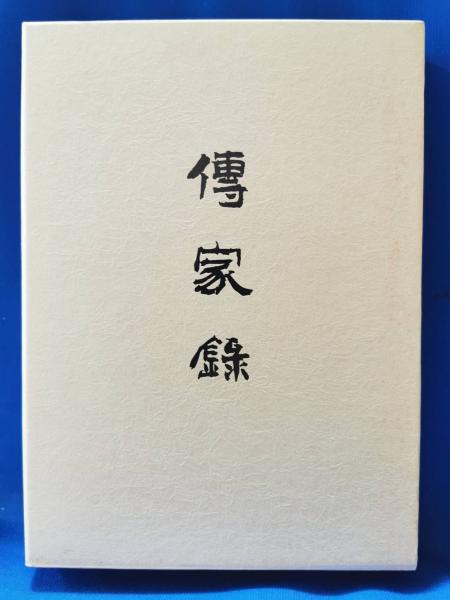 傳家錄